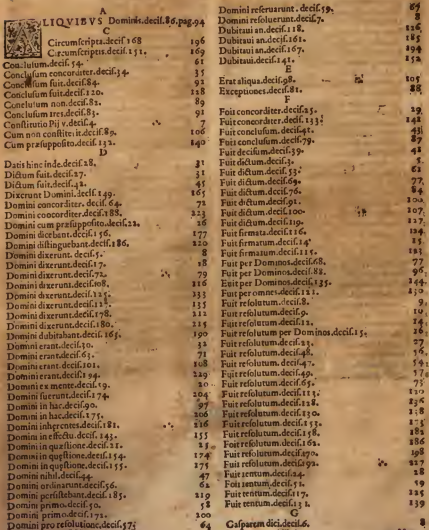 A
ALIQVIBVS Dominis.decis.86.pag.94
C
Circumscripta.decis 168 196
Circumscripta.decis.151. 169
Conclusum.decis.54. 61
Conclusum concorditer.decis.34. 35
Conclusum fuit.decis.84. 92
Conclusum fuit.decis.120. 128
Conclusum non.decis.82. 89
Conclusum tres.decis.83. 91
Constitutio Pij v.decis.4. 7
Cum non constiterit.decis.89. 106
Cum præsupposito.decis.132. 140
D
Datis hinc inde.decis.28. 31
Dictum fuit.decis.27. 31
Dictum fuit.decis.42. 45
Dixerunt Domini.decis.149. 165
Domini concorditer.decis.64. 72
Domini concorditer.decis.188. 223
Domini cum præsupposito.decis.22. 26
Domini dicebant.decis.156. 177
Domini distinguebant.decis.186. 220
Domini dixerunt.decis.5. 8
Domini dixerunt.decis.17. 18
Domini dixerunt.decis.72. 79
Domini dixerunt.decis.108. 116
Domini dixerunt.decis.125. 133
Domini dixerunt.decis.135
Domini dixerunt.decis.178. 212
Domini dixerunt.decis.180. 215
Domini dubitabant.decis.165. 190
Domini erant.decis.30. 32
Domini erant.decis.63. 71
Domini erant.decis.101. 108
Domini erant.decis.194. 229
Domini ex mente.decis.19. 20
Domini fuerunt.decis.174. 204
Domini in hac.decis.90. 97
Domini in hac.decis.175. 206
Domini inherentes.decis.181. 216
Domini in effectu.decis.143. 155
Domini in quæstione.decis.21. 25
Domini in quæstione.decis.154. 174
Domini in quæstione.decis.155. 175
Domini nihil.decis.44. 47
Domini ordinarunt.decis.56. 62
Domini persistebant.decis.185. 219
Domini primo.decis.50. 58
Domini primo.decis.172. 200
Domini pro resolutione.decis.57. 64
Domini reseruarunt.decis.59. 64
Domini resoluerunt.decis.7. 8
Dubitaui an.decis.118. 126
Dubitaui an.decis.161. 185
Dubitaui an.decis.167. 194
Dubitaui.decis.141. 152
E
Erat aliqua.decis.98. 105
Exceptiones.decis.81. 88
F
Fuit concorditer.decis.25. 29
Fuit concorditer.decis.133. 142
Fuit conclusum.decis.41. 43
Fuit conclusum.decis.79. 87
Fuit decisum.decis.39. 42
Fuit dictum.decis.3. 5
Fuit dictum.decis.53. 61
Fuit dictum.decis.69. 77
Fuit dictum.decis.76. 84
Fuit dictum.decis.92. 100
Fuit dictum.decis.100. 107
Fuit dictum.decis.119. 127
Fuit firmata.decis.116. 124
Fuit firmatum.decis.14. 15
Fuit firmatum.decis.115. 123
Fuit per Dominos.decis.68. 77
Fuit per Dominos.decis.88. 96
Fuit per Dominos.decis.135. 144
Fuit per omnes.decis.122. 130
Fuit resolutum.decis.8. 9
Fuit resolutum.decis.9. 10
Fuit resolutum.decis.12. 14
Fuit resolutum per Dominos.decis.15. 16
Fuit resolutum.decis.23. 27
Fuit resolutum.decis.48. 56
Fuit resolutum.decis.47. 54
Fuit resolutum.decis.49. 57
Fuit resolutum.decis.65. 73
Fuit resolutum.decis.113. 120
Fuit resolutum.decis.128. 136
Fuit resolutum.decis.130. 138
Fuit resolutum.decis.153. 173
Fuit resolutum.decis.158. 182
Fuit resolutum.decis.162. 186
Fuit resolutum.decis.170. 198
Fuit resolutum.decis.192. 227
Fuit tentum.decis.24. 28
Fuit tentum.decis.51. 59
Fuit tentum.decis.117. 125
Fuit tentum.decis.131. 139
G
Gasparem dici.decis.6. 8